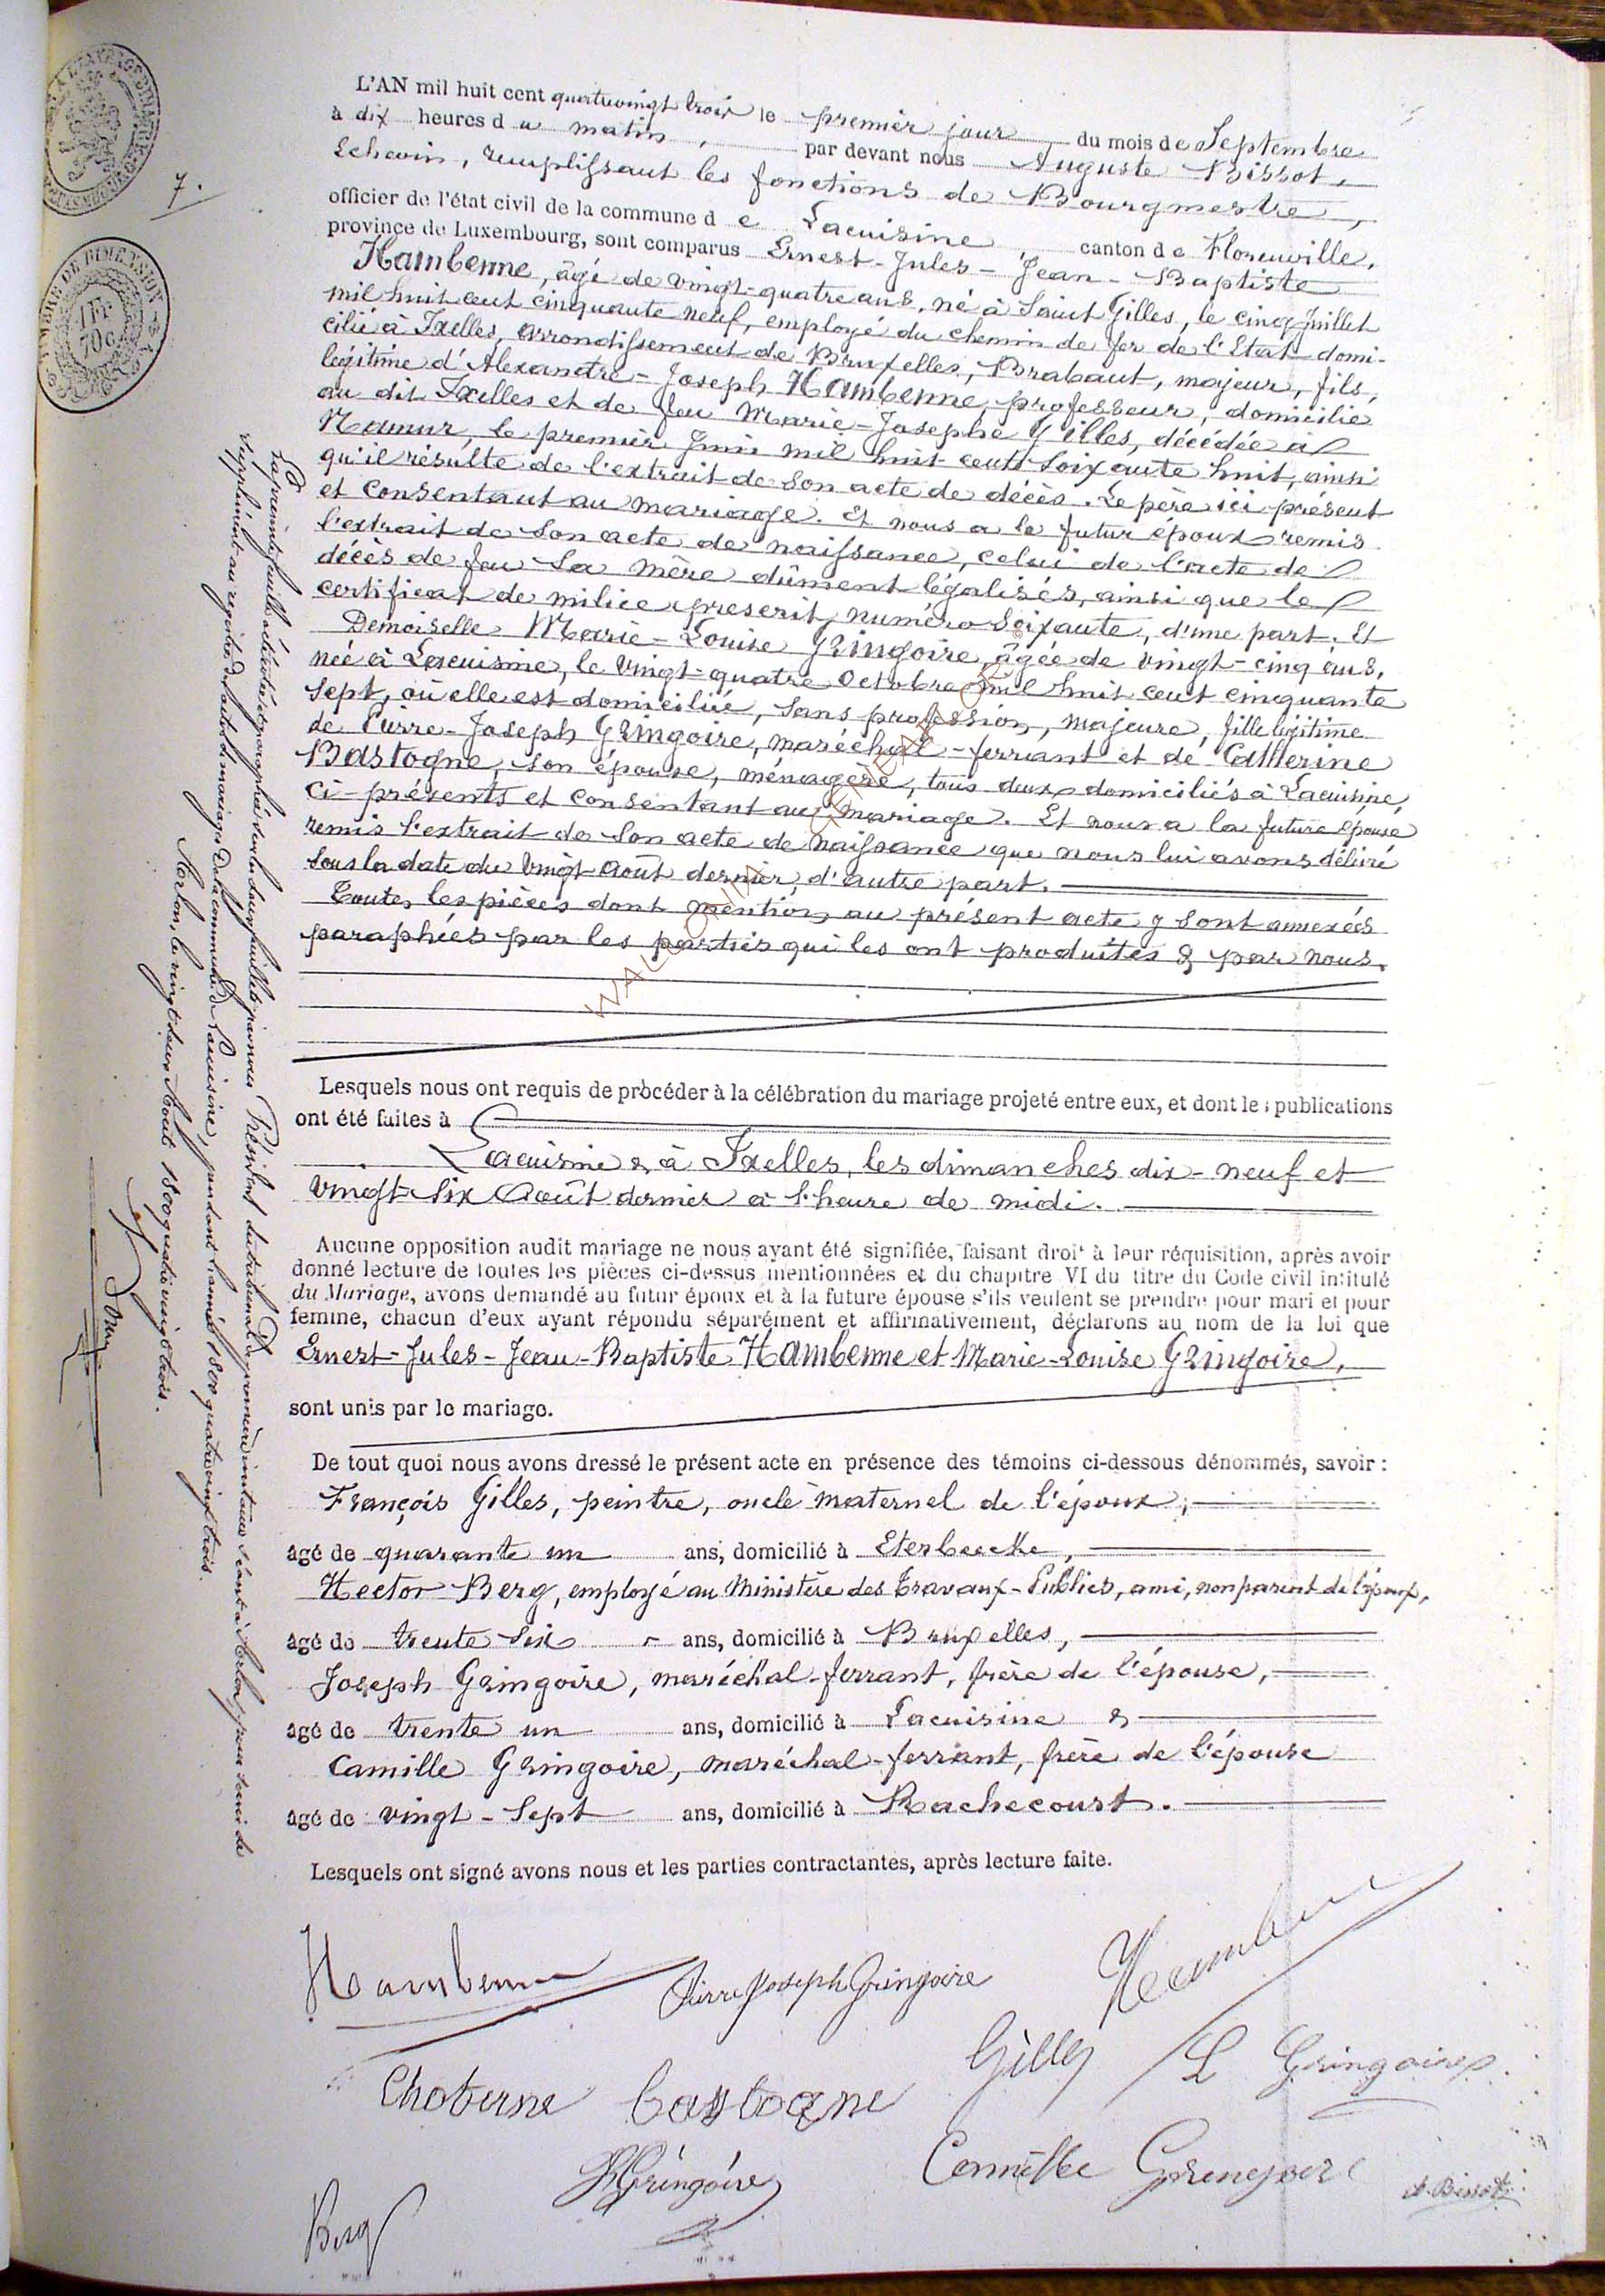 7.
L'AN mil huit cent quatrevingt trois le premier jour du mois de Septembre
à dix heures du matin, par devant nous Auguste Bissot,
Echevin, remplissant les fonctions de Bourgmestre,
officier de l'état civil de la commune de Lacuisine, canton de Florenville,
province de Luxembourg, sont comparus Ernest-Jules-Jean-Baptiste
Hambenne, âgé de vingt-quatre ans, né à Saint Gilles, le cinq Juillet
mil huit cent cinquante neuf, employé du chemin de fer de l'Etat domi-
cilié à Ixelles, arrondissement de Bruxelles, Brabant, majeur, fils,
légitime d'Alexandre-Joseph Hambenne, professeur, domicilié
au dit Ixelles et de feu Marie-Josephe Gilles, décédée à
Namur, le premier Juin mil huit cent soixante huit, ainsi
qu'il résulte de l'extrait de son acte de décès. Le père ici présent
et consentant au mariage. Et nous a le futur époux remis
l'extrait de son acte de naissance, celui de l'acte de
décès de feu sa mère dûment légalisés, ainsi que le
certificat de milice prescrit, numéro soixante, d'une part. Et
Demoiselle Marie-Louise Gringoire, âgée de vingt-cinq ans,
née à Lacuisine, le vingt-quatre Octobre mil huit cent cinquante
sept, où elle est domiciliée, sans profession, majeure, fille légitime
de Pierre-Joseph Gringoire, maréchal-ferrant et de Catherine
Bastogne, son épouse, ménagère, tous deux domiciliés à Lacuisine,
ci-présents et consentant au mariage. Et nous a la future épouse
remis l'extrait de son acte de naissance que nous lui avons délivré
sous la date du vingt Août dernier, d'autre part.
Toutes les pièces dont mention au présent acte y sont annexées
paraphées par les parties qui les ont produites & par nous.
Lesquels nous ont requis de procéder à la célébration du mariage projeté entre eux, et dont les publications
ont été faites à
Lacuisine & à Ixelles, les dimanches dix-neuf et
vingt-six Août dernier à l'heure de midi.
Aucune opposition audit mariage ne nous ayant été signifiée, faisant droit à leur réquisition, après avoir
donné lecture de toutes les pièces ci-dessus mentionnées et du chapitre VI du titre du Code civil intitulé
du Mariage, avons demandé au futur époux et à la future épouse s'ils veulent se prendre pour mari et pour
femme, chacun d'eux ayant répondu séparément et affirmativement, déclarons au nom de la loi que
Ernest-Jules-Jean-Baptiste Hambenne et Marie-Louise Gringoire,
sont unis par le mariage.
De tout quoi nous avons dressé le présent acte en présence des témoins ci-dessous dénommés, savoir :
François Gilles, peintre, oncle maternel de l'époux,
âgé de quarante un ans, domicilié à Eterbeecke,
Hector Berg, employé au Ministère des Travaux-Publics, ami, non parent de l'époux,
âgé de trente six ans, domicilié à Bruxelles,
Joseph Gringoire, maréchal-ferrant, frère de l'épouse,
âgé de trente un ans, domicilié à Lacuisine &
Camille Gringoire, maréchal-ferrant, frère de l'épouse
âgé de vingt-sept ans, domicilié à Rachecourt.
Lesquels ont signé avons nous et les parties contractantes, après lecture faite.
Hambenne Pierre Joseph Gringoire Hambenne
Gilles L Gringoire
Choterne bastogne
J Gringoire Camille Gringoire A. Bissot
Berg
La présente feuille a été cotée et paraphée seule de feuillet par nous Président du tribunal de première instance séant à Arlon, pour servir de
supplément au registre des actes de mariage de la commune de Lacuisine, pendant l'année 1800 quatre vingt trois.
Arlon, le vingt deux Août 1800 quatre vingt trois.
TIMBRE DE DIMENSION
1 Fr
70 c
WALLONIA GENEALOGIE